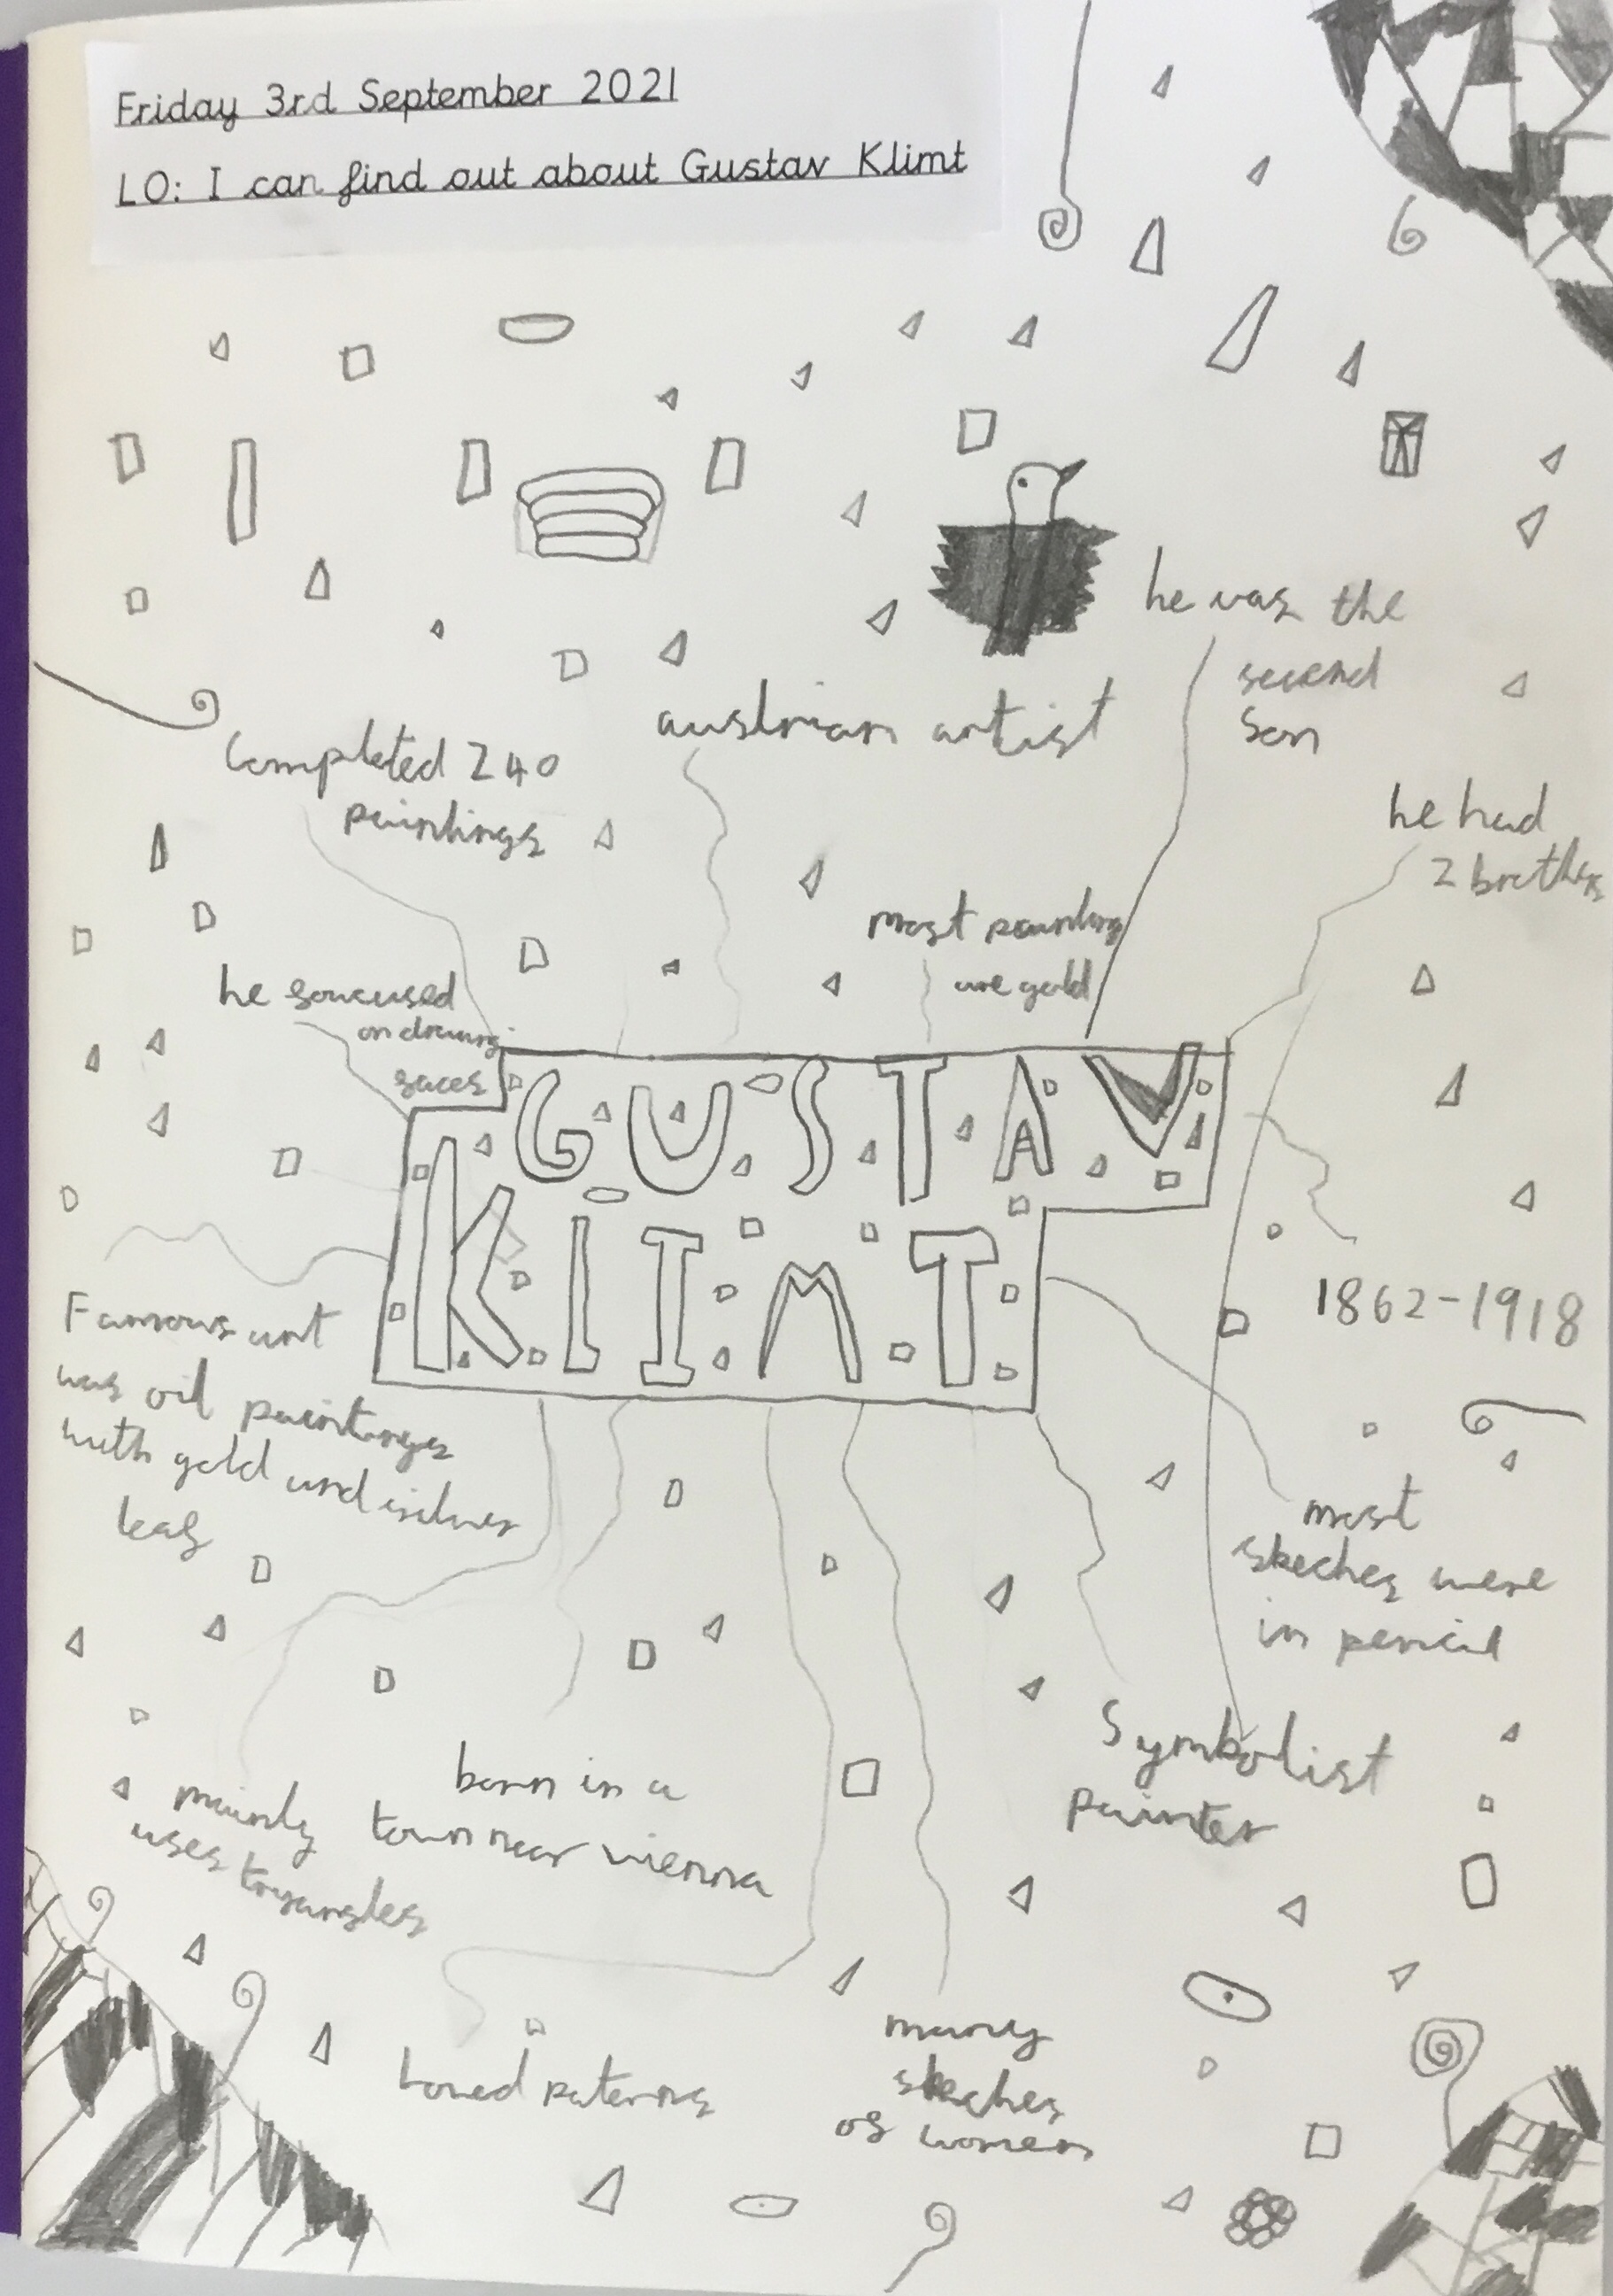 Friday 3rd September 2021
LO: I can find out about Gustav Klimt
he was the
second
son
austrian artist
Completed 240
paintings
he had
2 brothers
most painting
are gold
he foucused
on drawing
faces
GUSTAV
KLIMT
1862-1918
Famous art
was oil paintings
with gold and silver
leaf
most
skeches were
in pencil
Symbolist
painter
born in a
town near vienna
mainly
uses tryangles
Loved paterns
many
skeches
of women